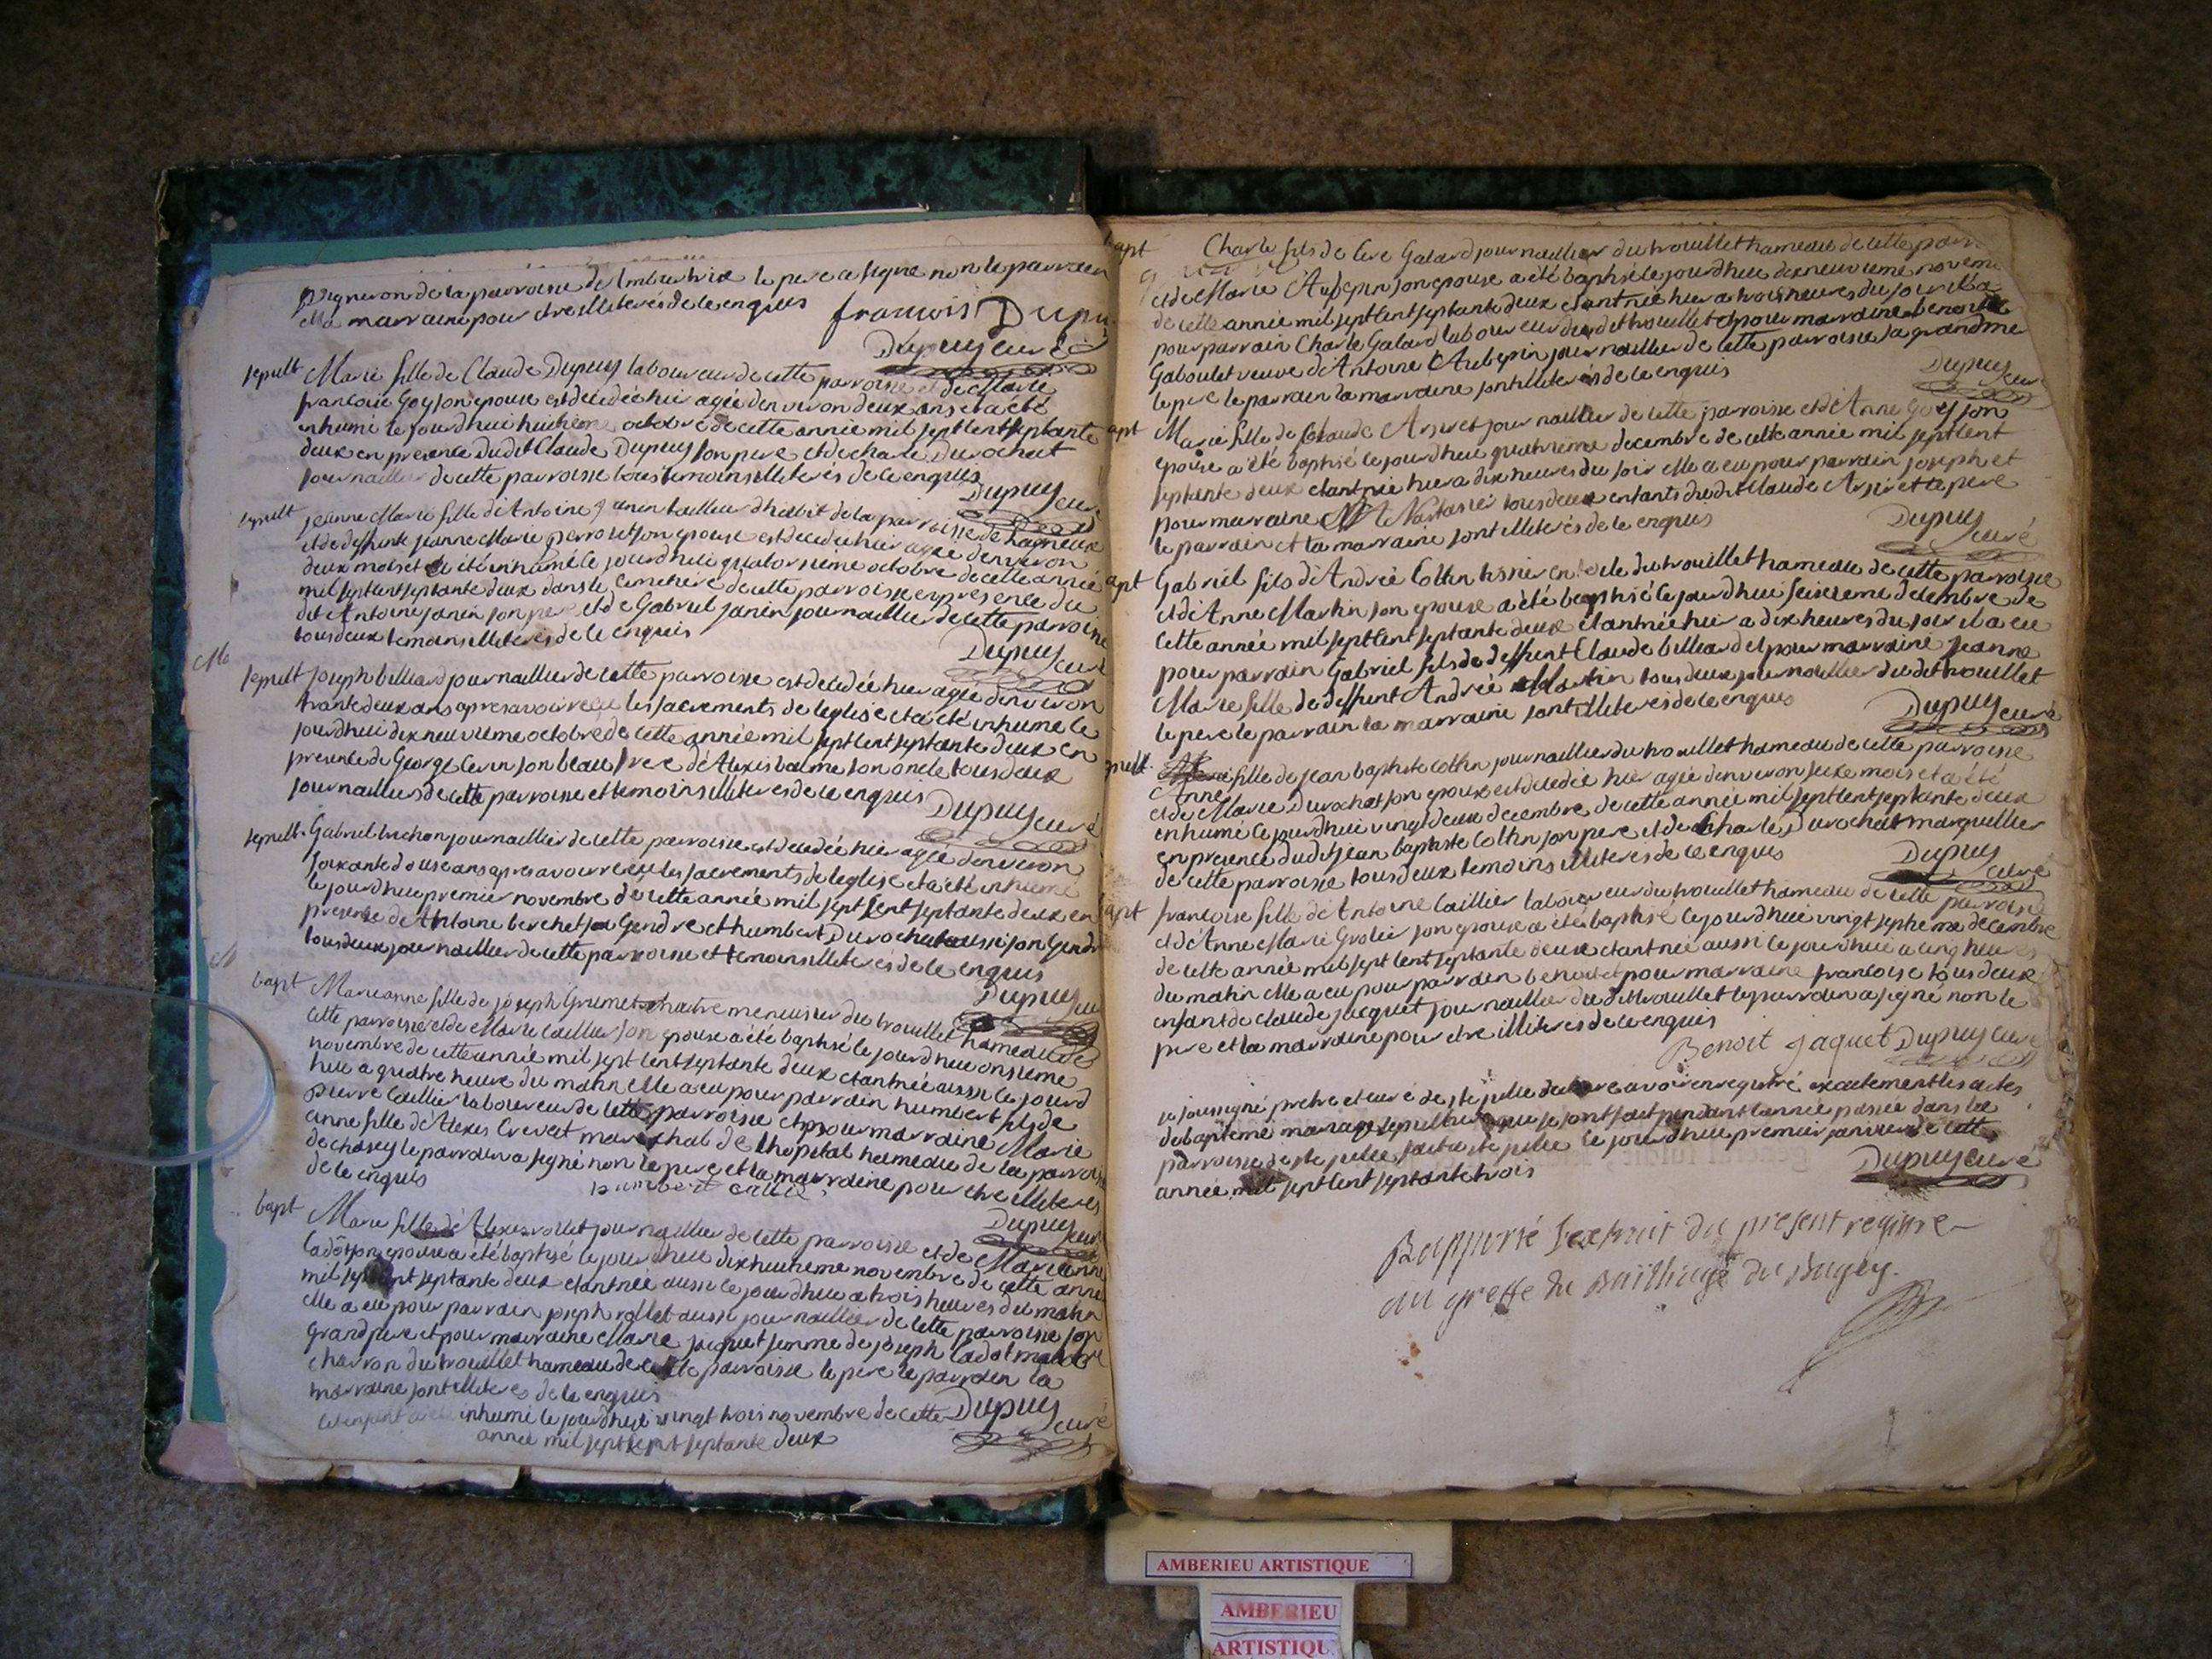 vigneron de la parroisse de le pere a signé non le parrain
et la marraine pour etre illiteres de ce enquis
francois Dupuy
Dupuy curé
sepult Marie fille de Claude Dupuy laboureur de cette parroisse et de Marie
francoise Goy son epouse est decedée hier agée d'environ deux ans et a été
inhumé le jourdhui huitieme octobre de cette année mil sept cent septante
deux en presence dudit Claude Dupuy son pere et de charle Durochat
journaillier de cette parroisse tous temoins illiteres de ce enquis
Dupuy curé
sepult jeanne Marie fille d'Antoine janin tailleur d'habit de la parroisse de Lagnieux
et de deffunte jeanne Marie perroset son epouse est decedée hier agée d'environ
deux mois et a été inhumé le jourdhui quatorsieme octobre de cette année
mil sept cent septante deux dans le cimetiere de cette parroisse en presence du
dit Antoine janin son pere et de Gabriel janin journaillier de cette parroisse
tous deux temoins illiteres de ce enquis
Dupuy curé
sepult joseph billiard journaillier de cette parroisse est decedée hier agée d'environ
trante deux ans apres avoir reçu les sacrements de leglise et a été inhumé le
jourdhui dix neuvieme octobre de cette année mil sept cent septante deux en
presence de George Cevin son beau frere d'Alexis balme son oncle tous deux
journailliers de cette parroisse et temoins illiteres de ce enquis
Dupuy curé
sepult. Gabriel trichon journaillier de cette parroisse est decedée hier agée d'environ
soixante douse ans apres avoir reçu les sacrements de leglise et a été inhumé
le jourdhui premier novembre de cette année mil sept cent septante deux en
presence de Antoine berchet son Gendre et humbert Durochat aussi son Gendre
tous deux journaillier de cette parroisse et temoins illiteres de ce enquis
Dupuy curé
bapt Marianne fille de joseph Grumet maitre menuisier du trouillet hameau de
cette parroisse et de Marie Caillier son epouse a été baptisé le jourdhui onsieme
novembre de cette année mil sept cent septante deux etant née aussi le jourd
hui a quatre heure du matin elle a eu pour parrain humbert fils de
pierre Caillier laboureur de cette parroisse et pour marraine Marie
anne fille d'Alexis Crevat marechal de lhopital hameau de la parroisse
de chasey le parrain a signé non le pere et la marraine pour etre illiteres
de ce enquis humbert
Dupuy curé
bapt Marie fille d'Alexis rollet journaillier de cette parroisse et de Marianne
Cadot son epouse a été baptisé le jourdhui dixhuitieme novembre de cette anné
mil sept cent septante deux etant née aussi le jourdhui a trois heures du matin
elle a eu pour parrain joseph rollet aussi journaillier de cette parroisse son
grandpere et pour marraine Marie jacquet femme de joseph Cadot maitre
charron du trouillet hameau de cette parroisse le pere le parrain la
marraine sont illiteres de ce enquis
inhumé le jourdhui vingt trois novembre de cette
Dupuy curé
année mil sept cent septante deux
bapt Charle fils de Galard journaillier du trouillet hameau de cette
et de Marie Aubepin son epouse a été baptisé le jourdhui dix neuvieme
de cette année mil sept cent septante deux etant née hier a trois heures du soir il a
pour parrain Charle Galard laboureur du dit trouillet et pour marraine benoite
Gaboulet veuve d'Antoine Aubepin journaillier de cette parroisse sa grandme
le pere le parrain la marraine sont illiteres de ce enquis
Dupuy curé
bapt Marie fille de Claude journaillier de cette parroisse et d'Anne Goy son
epouse a été baptisé le jourdhui quatrieme decembre de cette année mil sept cent
septante deux etant née hier a dix heures du soir elle a eu pour parrain joseph et
pour marraine tous deux enfants du dit Claude le pere
le parrain et la marraine sont illiteres de ce enquis
Dupuy curé
bapt Gabriel fils d'André Cottin tisier en toile du trouillet hameau de cette parroisse
et d'Anne Martin son epouse a été baptisé le jourdhui seisieme decembre de
cette année mil sept cent septante deux etant née hier a dix heures du soir il a eu
pour parrain Gabriel fils de deffunt Claude billiard et pour marraine jeanne
Marie fille de deffunt André Martin tous deux journaillier du dit trouillet
le pere le parrain la marraine sont illiteres de ce enquis
Dupuy curé
sepult. fille de jean baptiste Cottin journaillier du trouillet hameau de cette parroisse
Anne
et de Marie Durochat son epouse est decedée hier agée d'environ seixe mois et a été
enhumé le jourdhui vingt deux decembre de cette année mil sept cent septante deux
en presence dudit jean baptiste Cottin son pere et de Charle Durochat marguillier
de cette parroisse tous deux temoins illiteres de ce enquis
Dupuy curé
bapt francoise fille d'Antoine Caillier laboureur du trouillet hameau de cette parroisse
et d'Anne Marie Grolier son epouse a été baptisé le jourdhui vingt septieme decembre
de cette année mil sept cent septante deux etant née aussi le jourdhui a cinq heures
du matin elle a eu pour parrain benoit et pour marraine francoise tous deux
enfant de claude jacquet journaillier du dit trouillet le parrain a signé non le
pere et la marraine pour etre illiteres de ce enquis
Benoit Jaquet Dupuy curé
je soussigné pretre et curé de ste julie declare avoir enregistré exactement les actes
de bapteme mariage sepulture qui se sont fait pendant lannée passée dans la
parroisse de ste julie fait a ste julie le jourdhui premier janvier de cette
année mil sept cent septante trois
Dupuy curé
Rapporté lextrait du present registre
au greffe du Bailliage du Bugey.
AMBERIEU ARTISTIQUE
AMBERIEU
ARTISTIQU